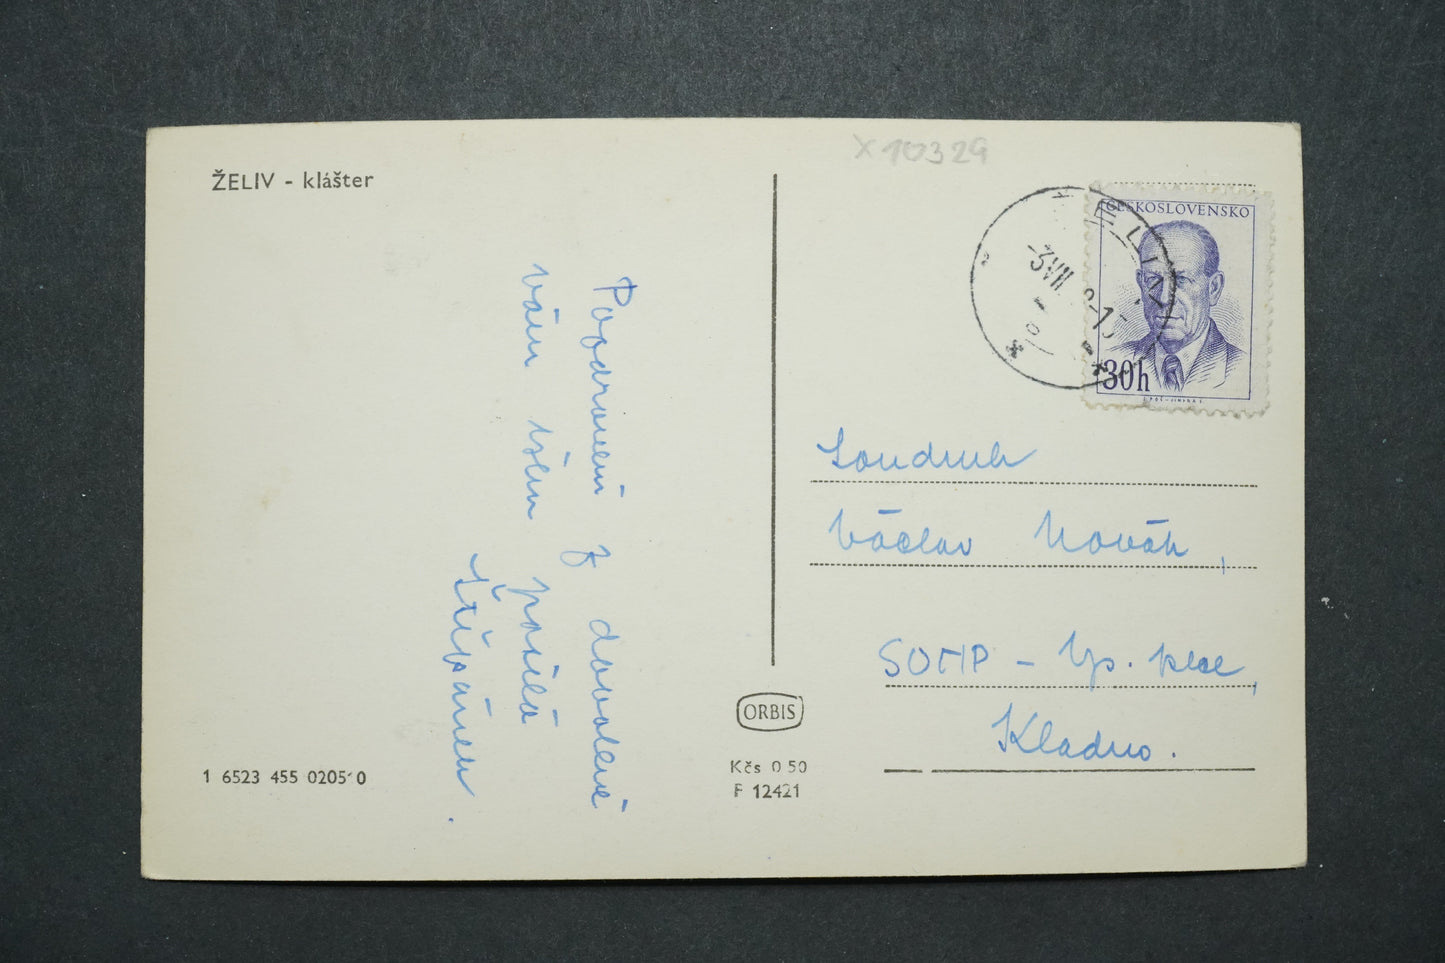 X 10329
ŽELIV - klášter
ČESKOSLOVENSKO
ŽELIV
-3.VII
30h
Pozdravení z dovolené
vám všem posílá
Štěpánek.
Soudruh
Václav Novák,
SONP - Vys. pece,
Kladno.
ORBIS
Kčs 0 50
F 12421
1 6523 455 0205 0